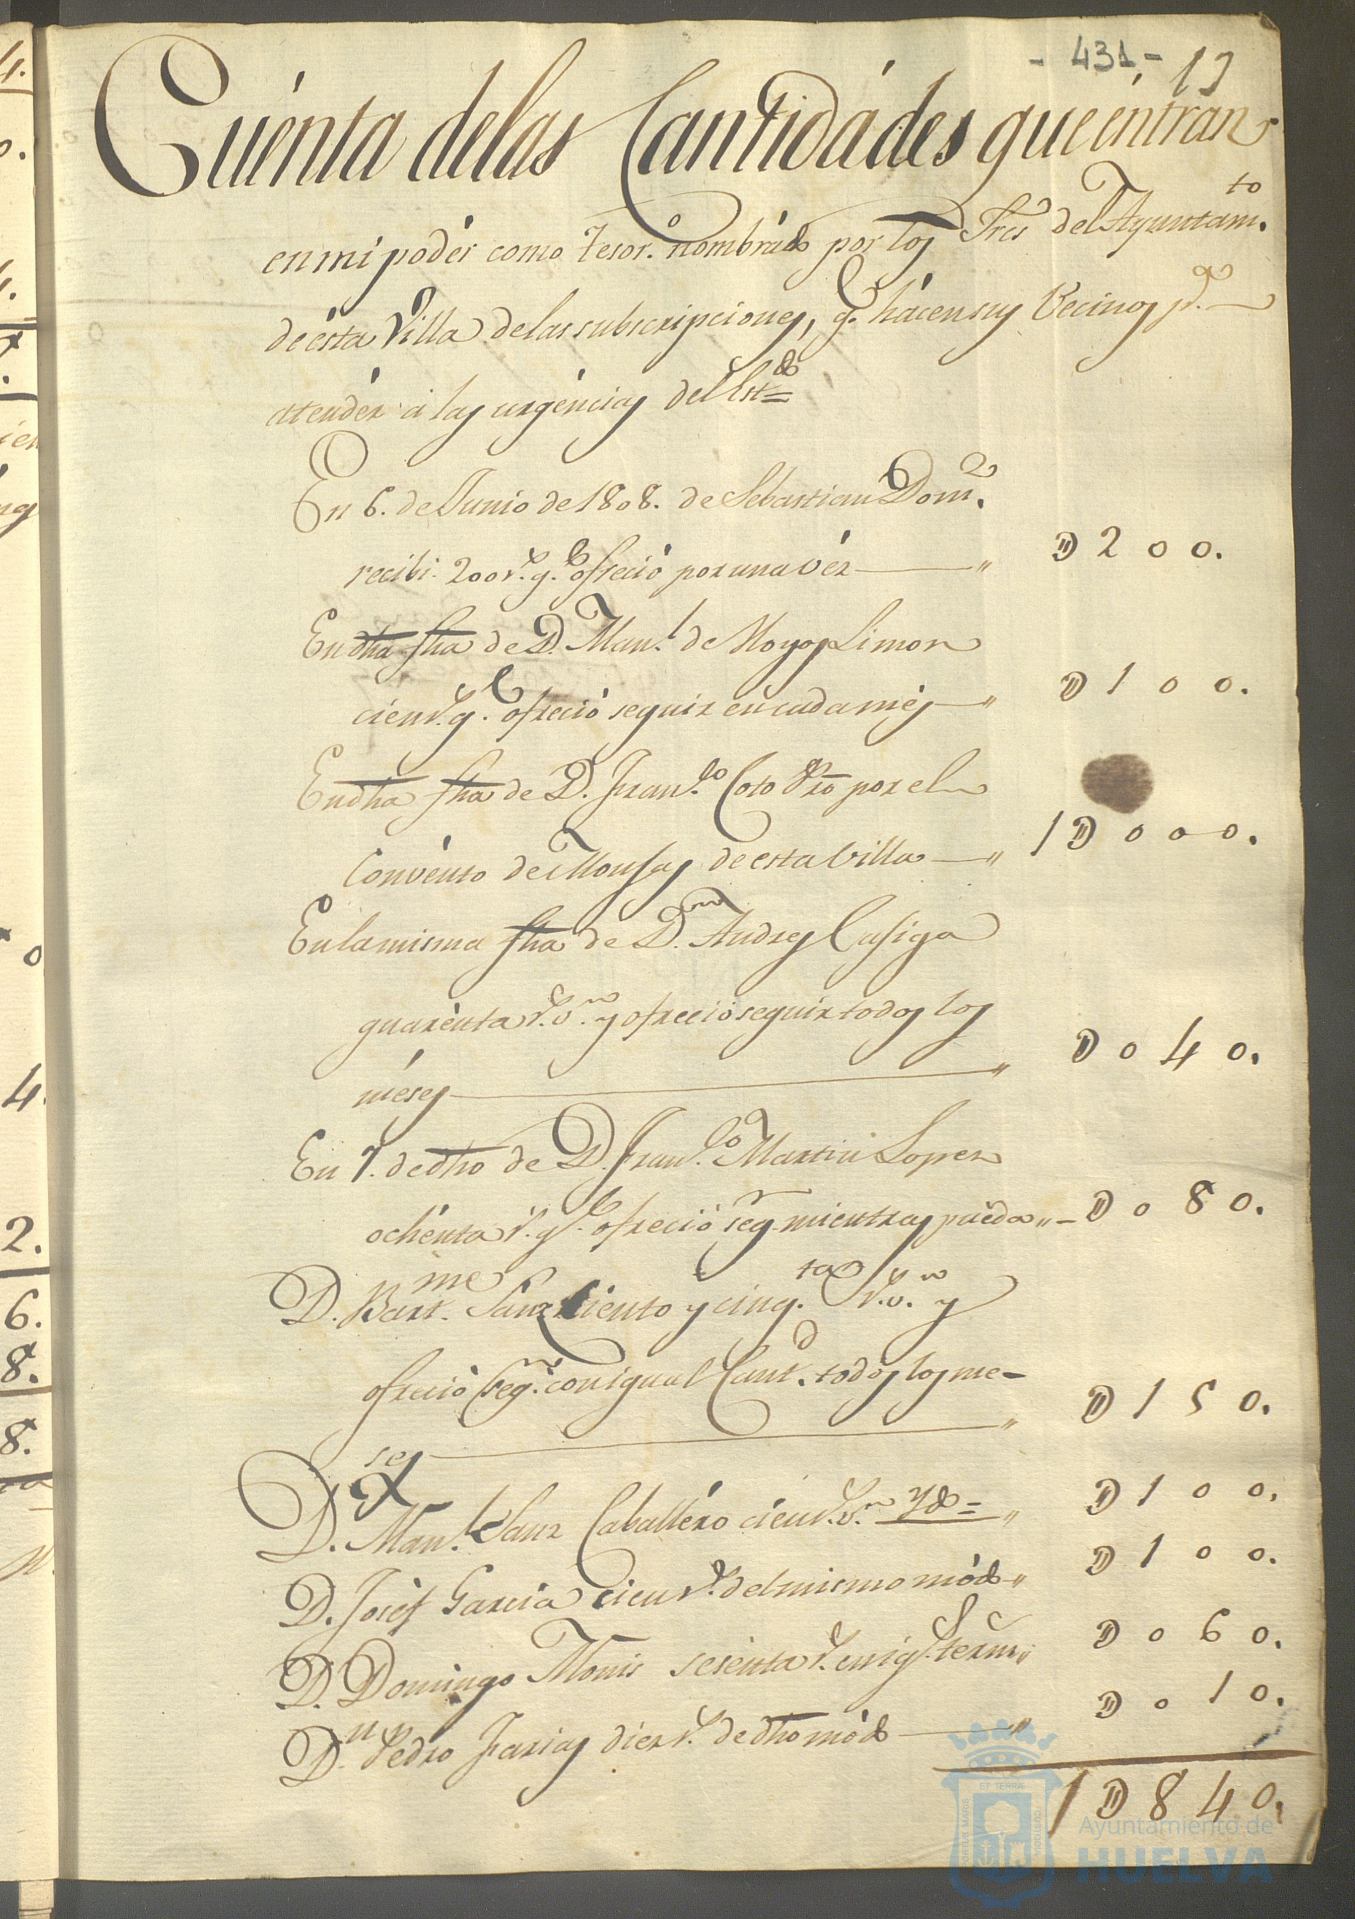 - 431 - 13
Cuénta delas Cantidádes que éntran
en mi podér como Tesor.º nombrádo por los Sres del Ayuntám.to
de ésta Villa de las subscripciones, q.e hácen sus Vecinos p.a
atendér á las urgéncias del Est.do =
En 6. de Junio de 1808. de Sebastian Dom.z
recibi 200 r.s q.e ofreció por una véz — " D 2 0 0.
En dha fha de D. Man.l de Moyos Limon
cien r.s q.e ofreció seguir en cada més — " D 1 0 0.
En dha fha de D. Fran.co Coto Pro por el
Convénto de Monjas de esta Villa — " 1 D 0 0 0.
En la misma fha de D.n Andres Casiga
quarénta r.s v.n y ofreció seguir todos los
méses — " D 0 4 0.
En 7. de dho de D. Fran.co Martin Lopez
ochénta r.s q.e ofreció seg.r mientras puéda " - D 0 8 0.
D. Bart.me Sanz Ciento y cinq.ta r.s v.n y
ofreció seg.r con igual Cant.d todos los me-
ses — " D 1 5 0.
D. Man.l Sanz Caballéro cién r.s v.n Yd = " D 1 0 0.
D. Joséf García cien r.s del mismo módo " D 1 0 0.
D. Domingo Monis sesenta r.s en ig.l térm.s " D 0 6 0.
D.n Pedro Farias diez r.s de dho módo — " D 0 1 0.
1 D 8 4 0.
ET TERRAE
Ayuntamiento de
HUELVA